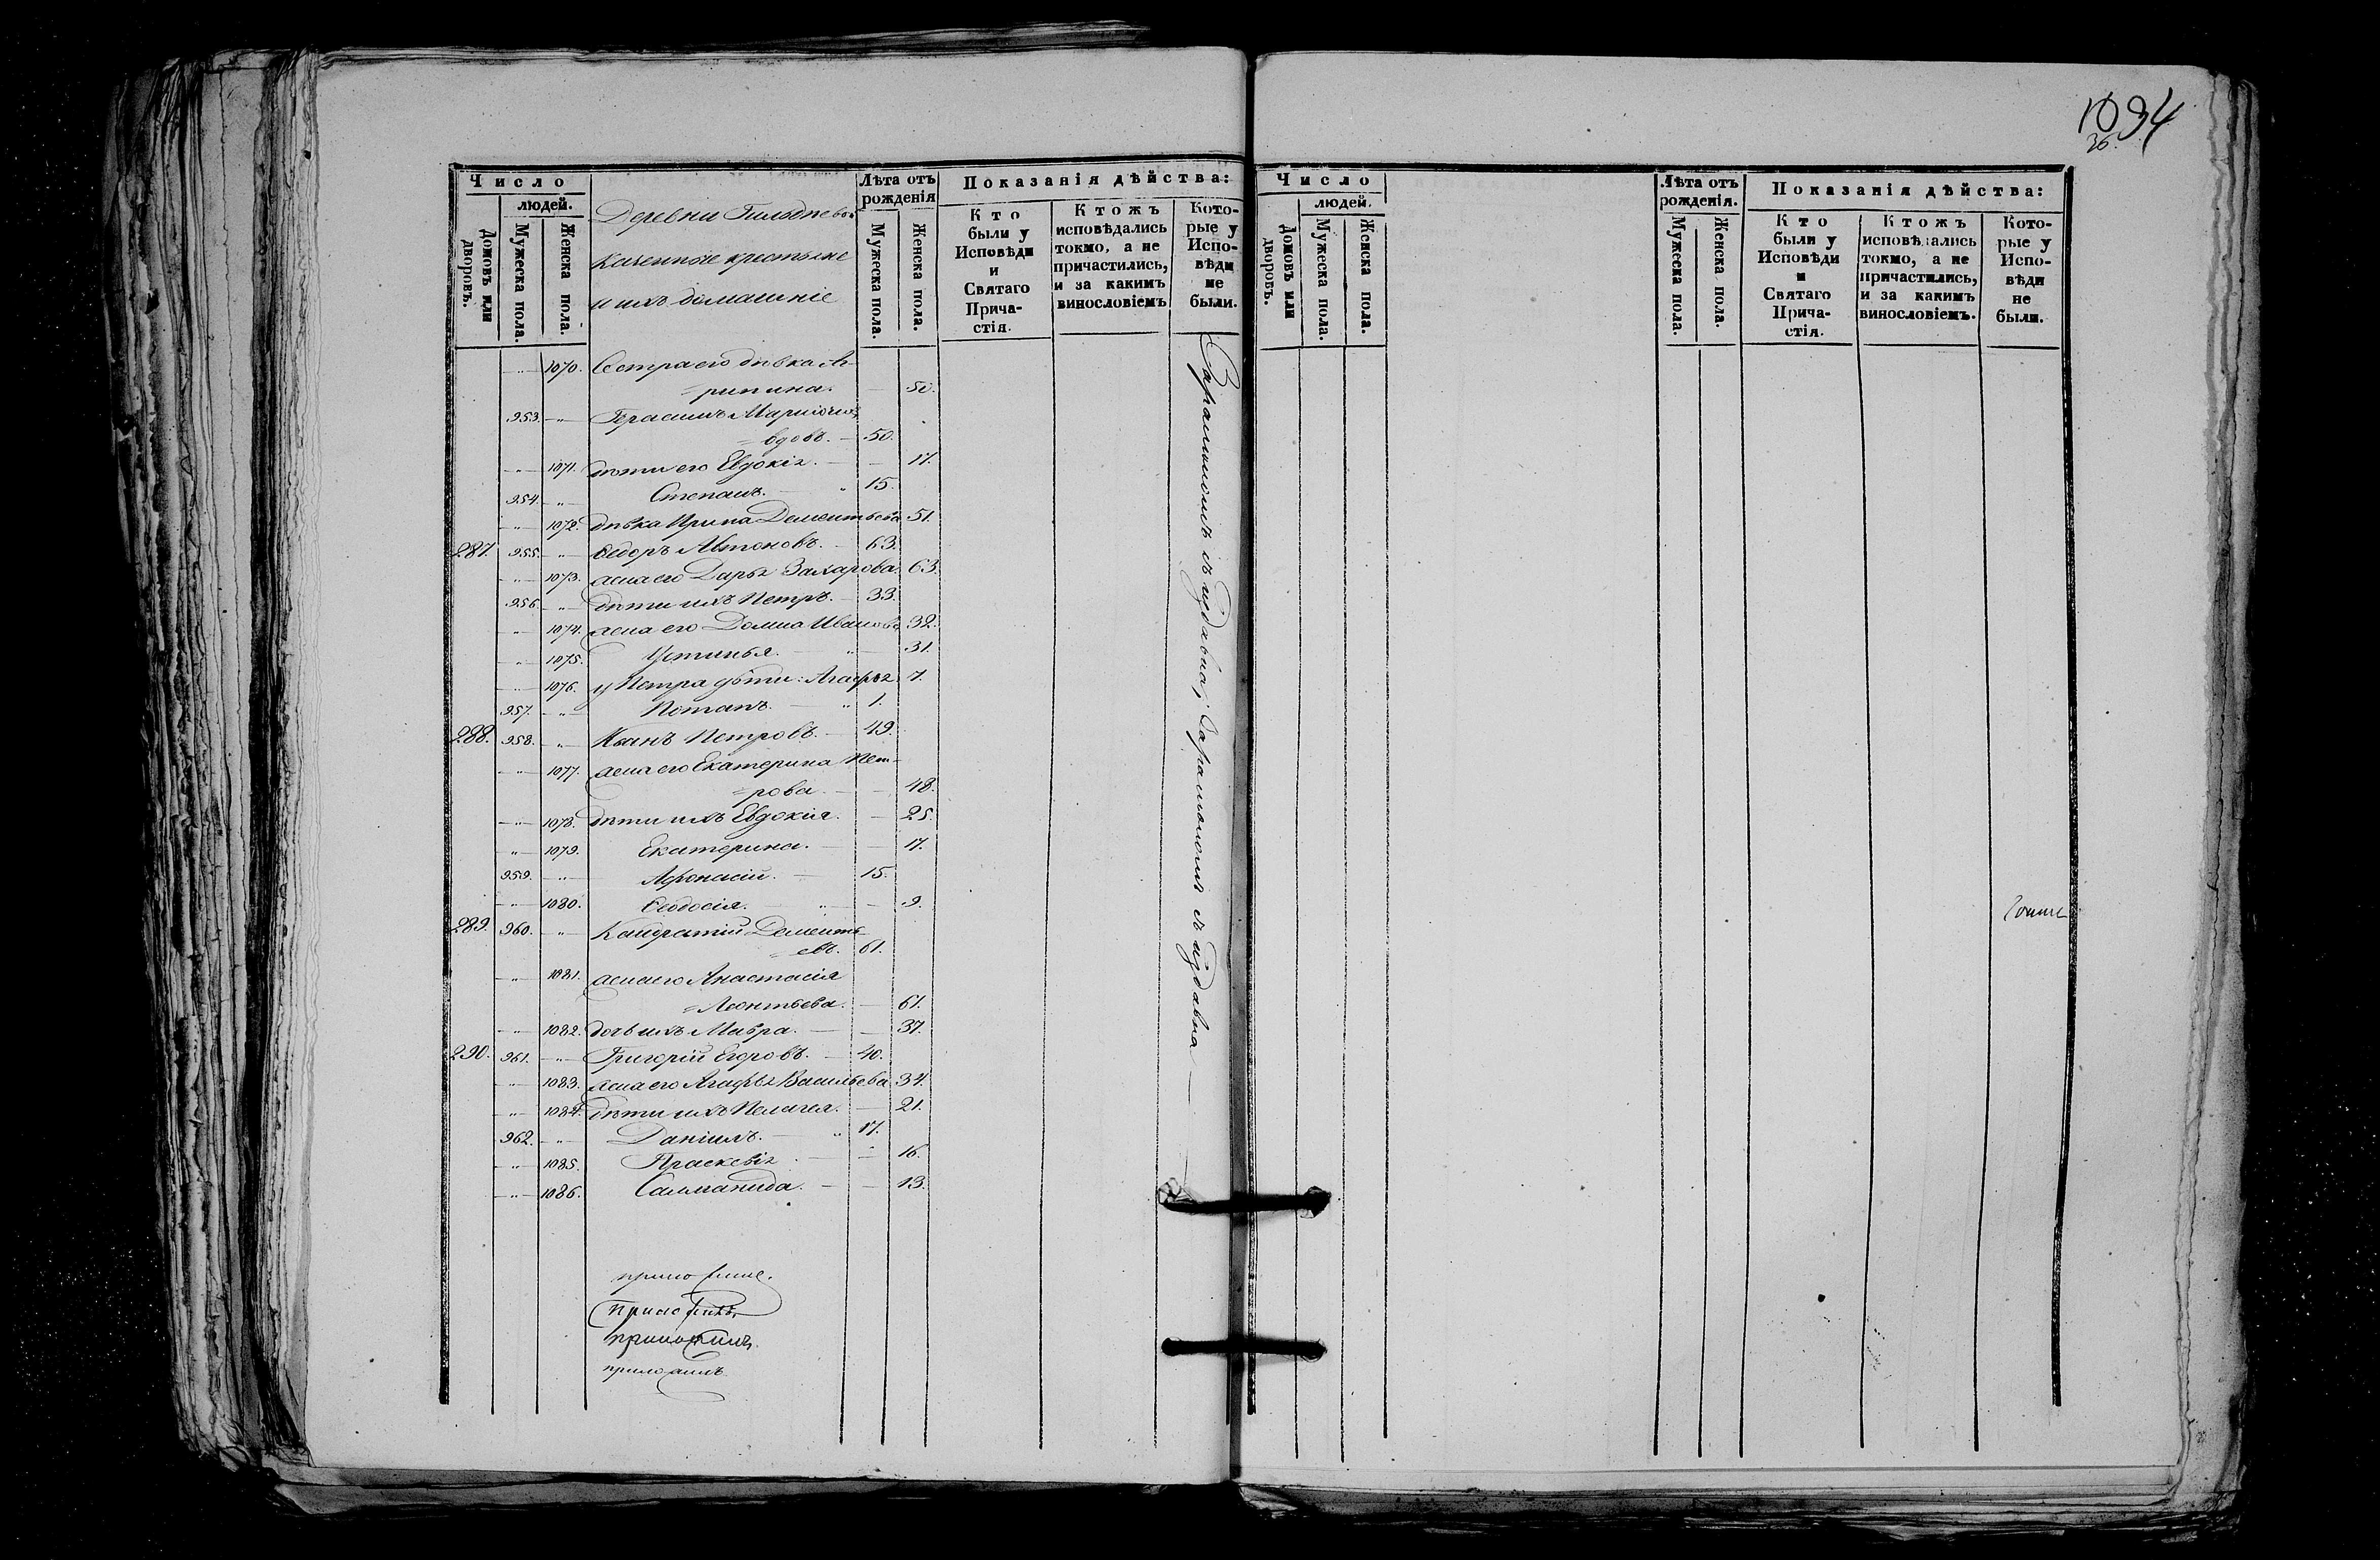 1094
36.
Число
людей.
Домовъ или дворовъ.
Мужеска пола.
Женска пола.
Деревни
казенные крестьяне
и ихъ домашніе
Лѣта отъ рожденія
Мужеска пола.
Женска пола.
Показанія дѣйства:
Кто были у Исповѣди и Святаго Прича-стія.
Ктожъ исповѣдались токмо, а не причастились, и за какимъ винословіемъ
Кото-рые у Испо-вѣди не были.
1070. Сестра его дѣвка Аг-
=рипина. — 50.
953. Герасимъ
=вдовъ. — 50.
1071. дѣти его Евдокія. — 17.
954. Степанъ. 15.
1072. дѣвка Ирина Дементьева 51.
287. 955. Ѳедоръ Автоновъ. — 63.
1073. жена его Дарья Захарова. 63.
956. дѣти ихъ Петръ. — 33.
1074. жена его Домна Иванова 32.
1075. Устинья. — 31.
1076. у Петра дѣти: Агафья 7.
957. Потапъ. — 1.
288. 958. Иванъ Петровъ. — 49.
1077. жена его Екатерина Пет-
=рова. — 48.
1078. дѣти ихъ Евдокія. — 25.
1079. Екатерина. — 17.
959. Афонасій. — 15.
1080. Ѳеодосія. — 9.
289. 960. Кандратій Дементь-
=евъ. 61.
1081. жена его Анастасія
=Леонтьева. — 61.
1082. дочь ихъ Мавра. — 37.
290. 961. Григорій Егоровъ. — 40.
1083. жена его Агафья Васильева 34.
1084. дѣти ихъ Пелагея. — 21.
962. Даніилъ. — 17.
1085. Праскевія. — 16.
1086. Саломанида. — 13.
Число
людей.
Домовъ или дворовъ.
Мужеска пола.
Женска пола.
Лѣта отъ рожденія.
Мужеска пола.
Женска пола.
Показанія дѣйства:
Кто были у Исповѣди и Святаго Прича-стія.
Ктожъ исповѣдались токмо, а не причастились, и за какимъ винословіемъ.
Кото-рые у Испо-вѣди не были.